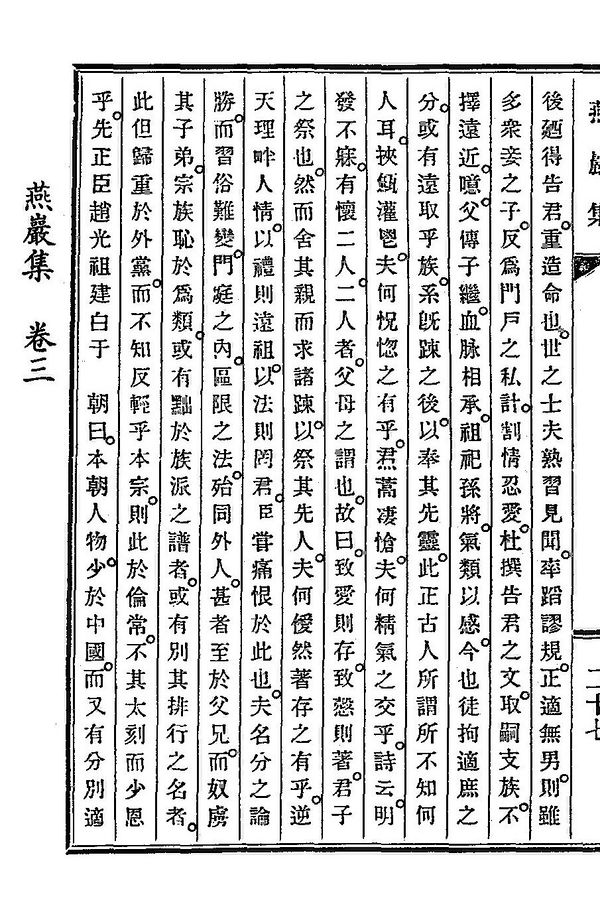 燕巖集
二十七
後廼得告君重造命也世之士夫熟習見聞率蹈謬規正適無男則雖
多衆妾之子反爲門戶之私計割情忍愛杜撰告君之文取嗣支族不
擇遠近噫父傳子繼血脉相承祖祀孫將氣類以感今也徒拘適庶之
分或有遠取乎族系旣踈之後以奉其先靈此正古人所謂所不知何
人耳挾瓻灌鬯夫何怳惚之有乎焄蒿凄愴夫何精氣之交乎詩云明
發不寐有懷二人二人者父母之謂也故曰致愛則存致慤則著君子
之祭也然而舍其親而求諸踈以祭其先人夫何僾然著存之有乎逆
天理畔人情以禮則遠祖以法則罔君臣甞痛恨於此也夫名分之論
勝而習俗難變門庭之內區限之法殆同外人甚者至於父兄而奴虜
其子弟宗族恥於爲類或有黜於族派之譜者或有別其排行之名者
此但歸重於外黨而不知反輕乎本宗則此於倫常不其太刻而少恩
乎先正臣趙光祖建白于 朝曰本朝人物少於中國而又有分別適
燕巖集 卷三